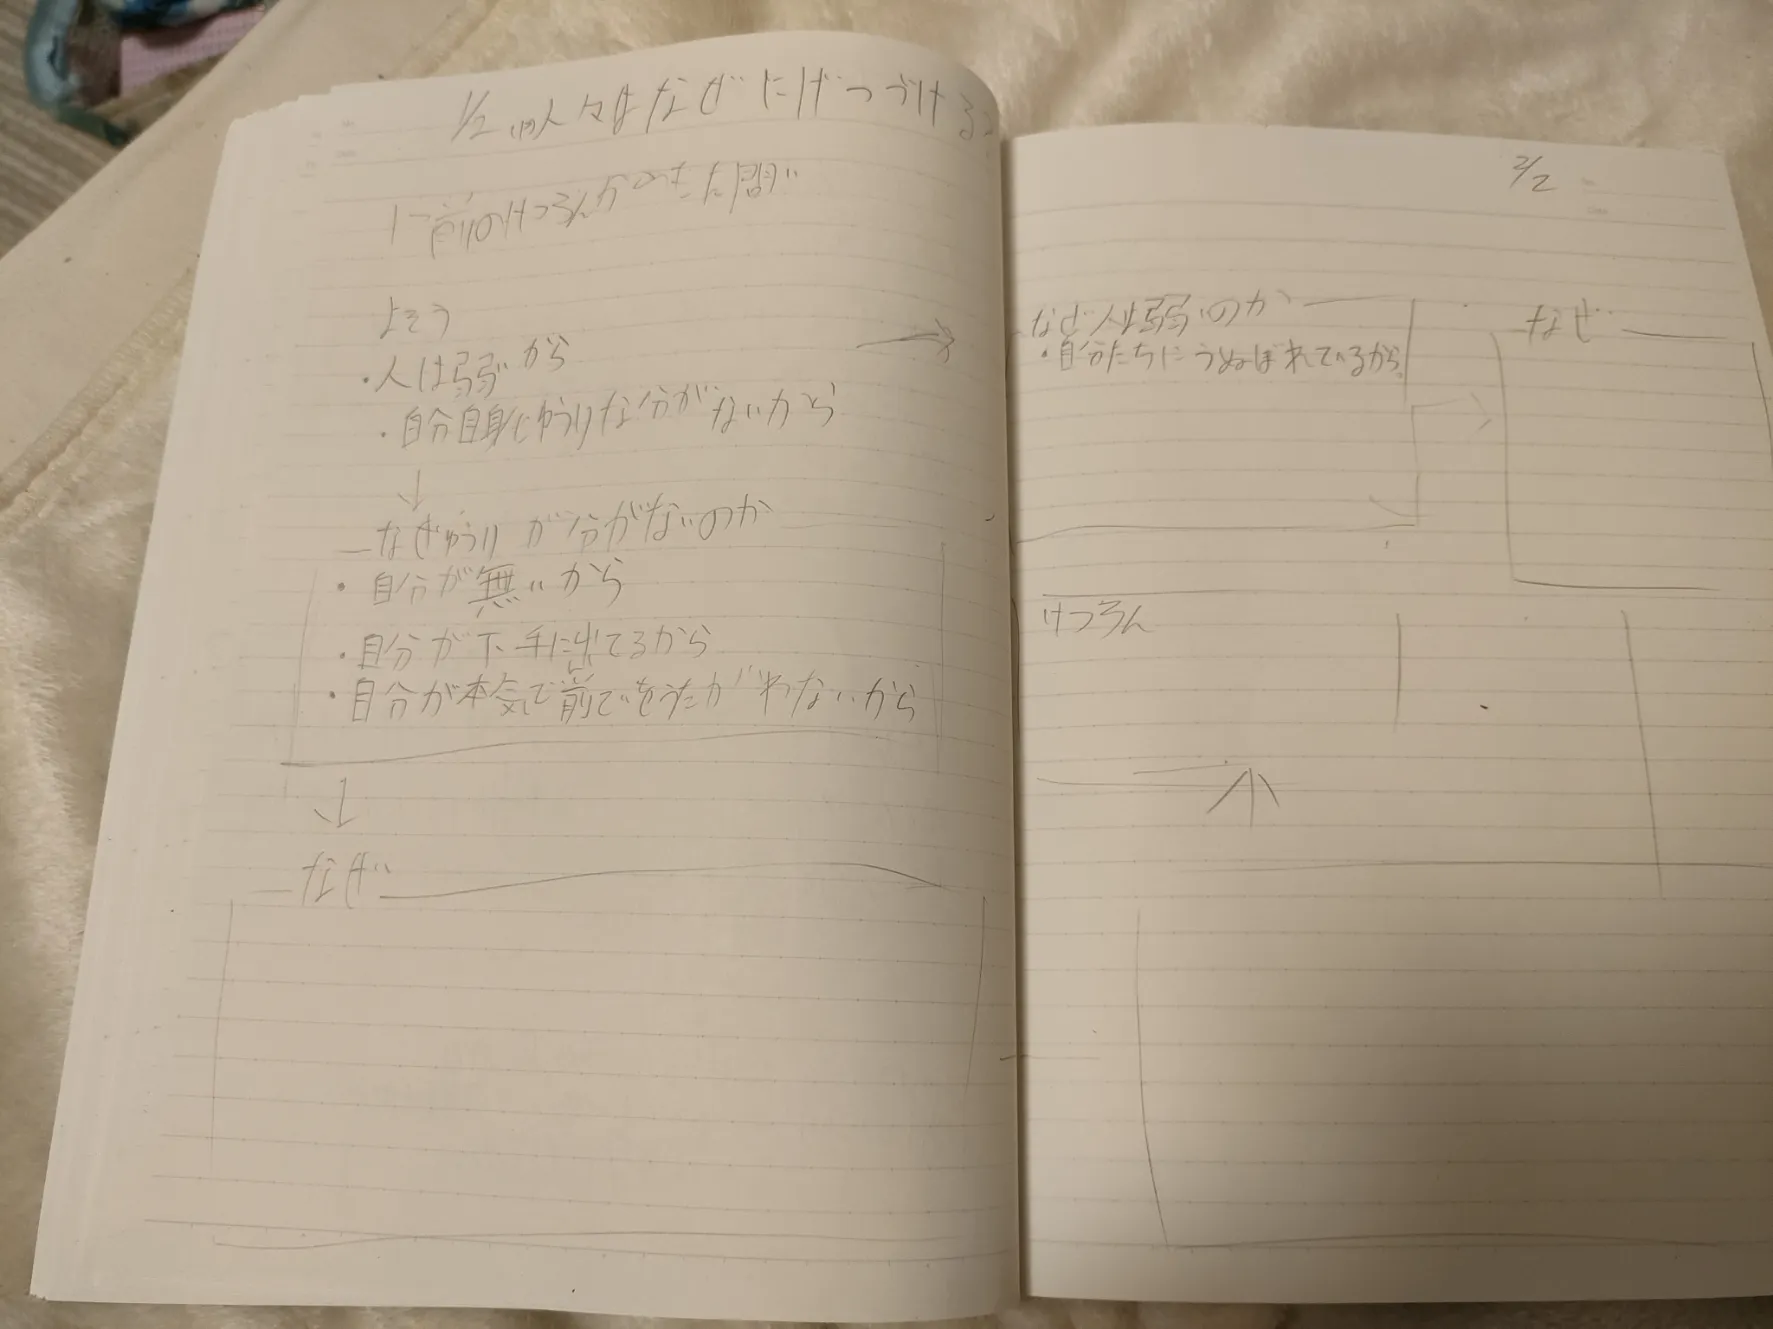 1/2 人々はなぜにげつづける
前のけつろんからのきた問い
よそう
・人は弱いから
・自分自身にゆうりな分がないから
↓
なぜゆうりが分がないのか
・自分が無いから
・自分が下手に出てるから
・自分が本気で前でをうたがわないから
↓
なぜ
→
2/2
なぜ人は弱いのか
・自分たちにうぬぼれているから。
なぜ
けつろん